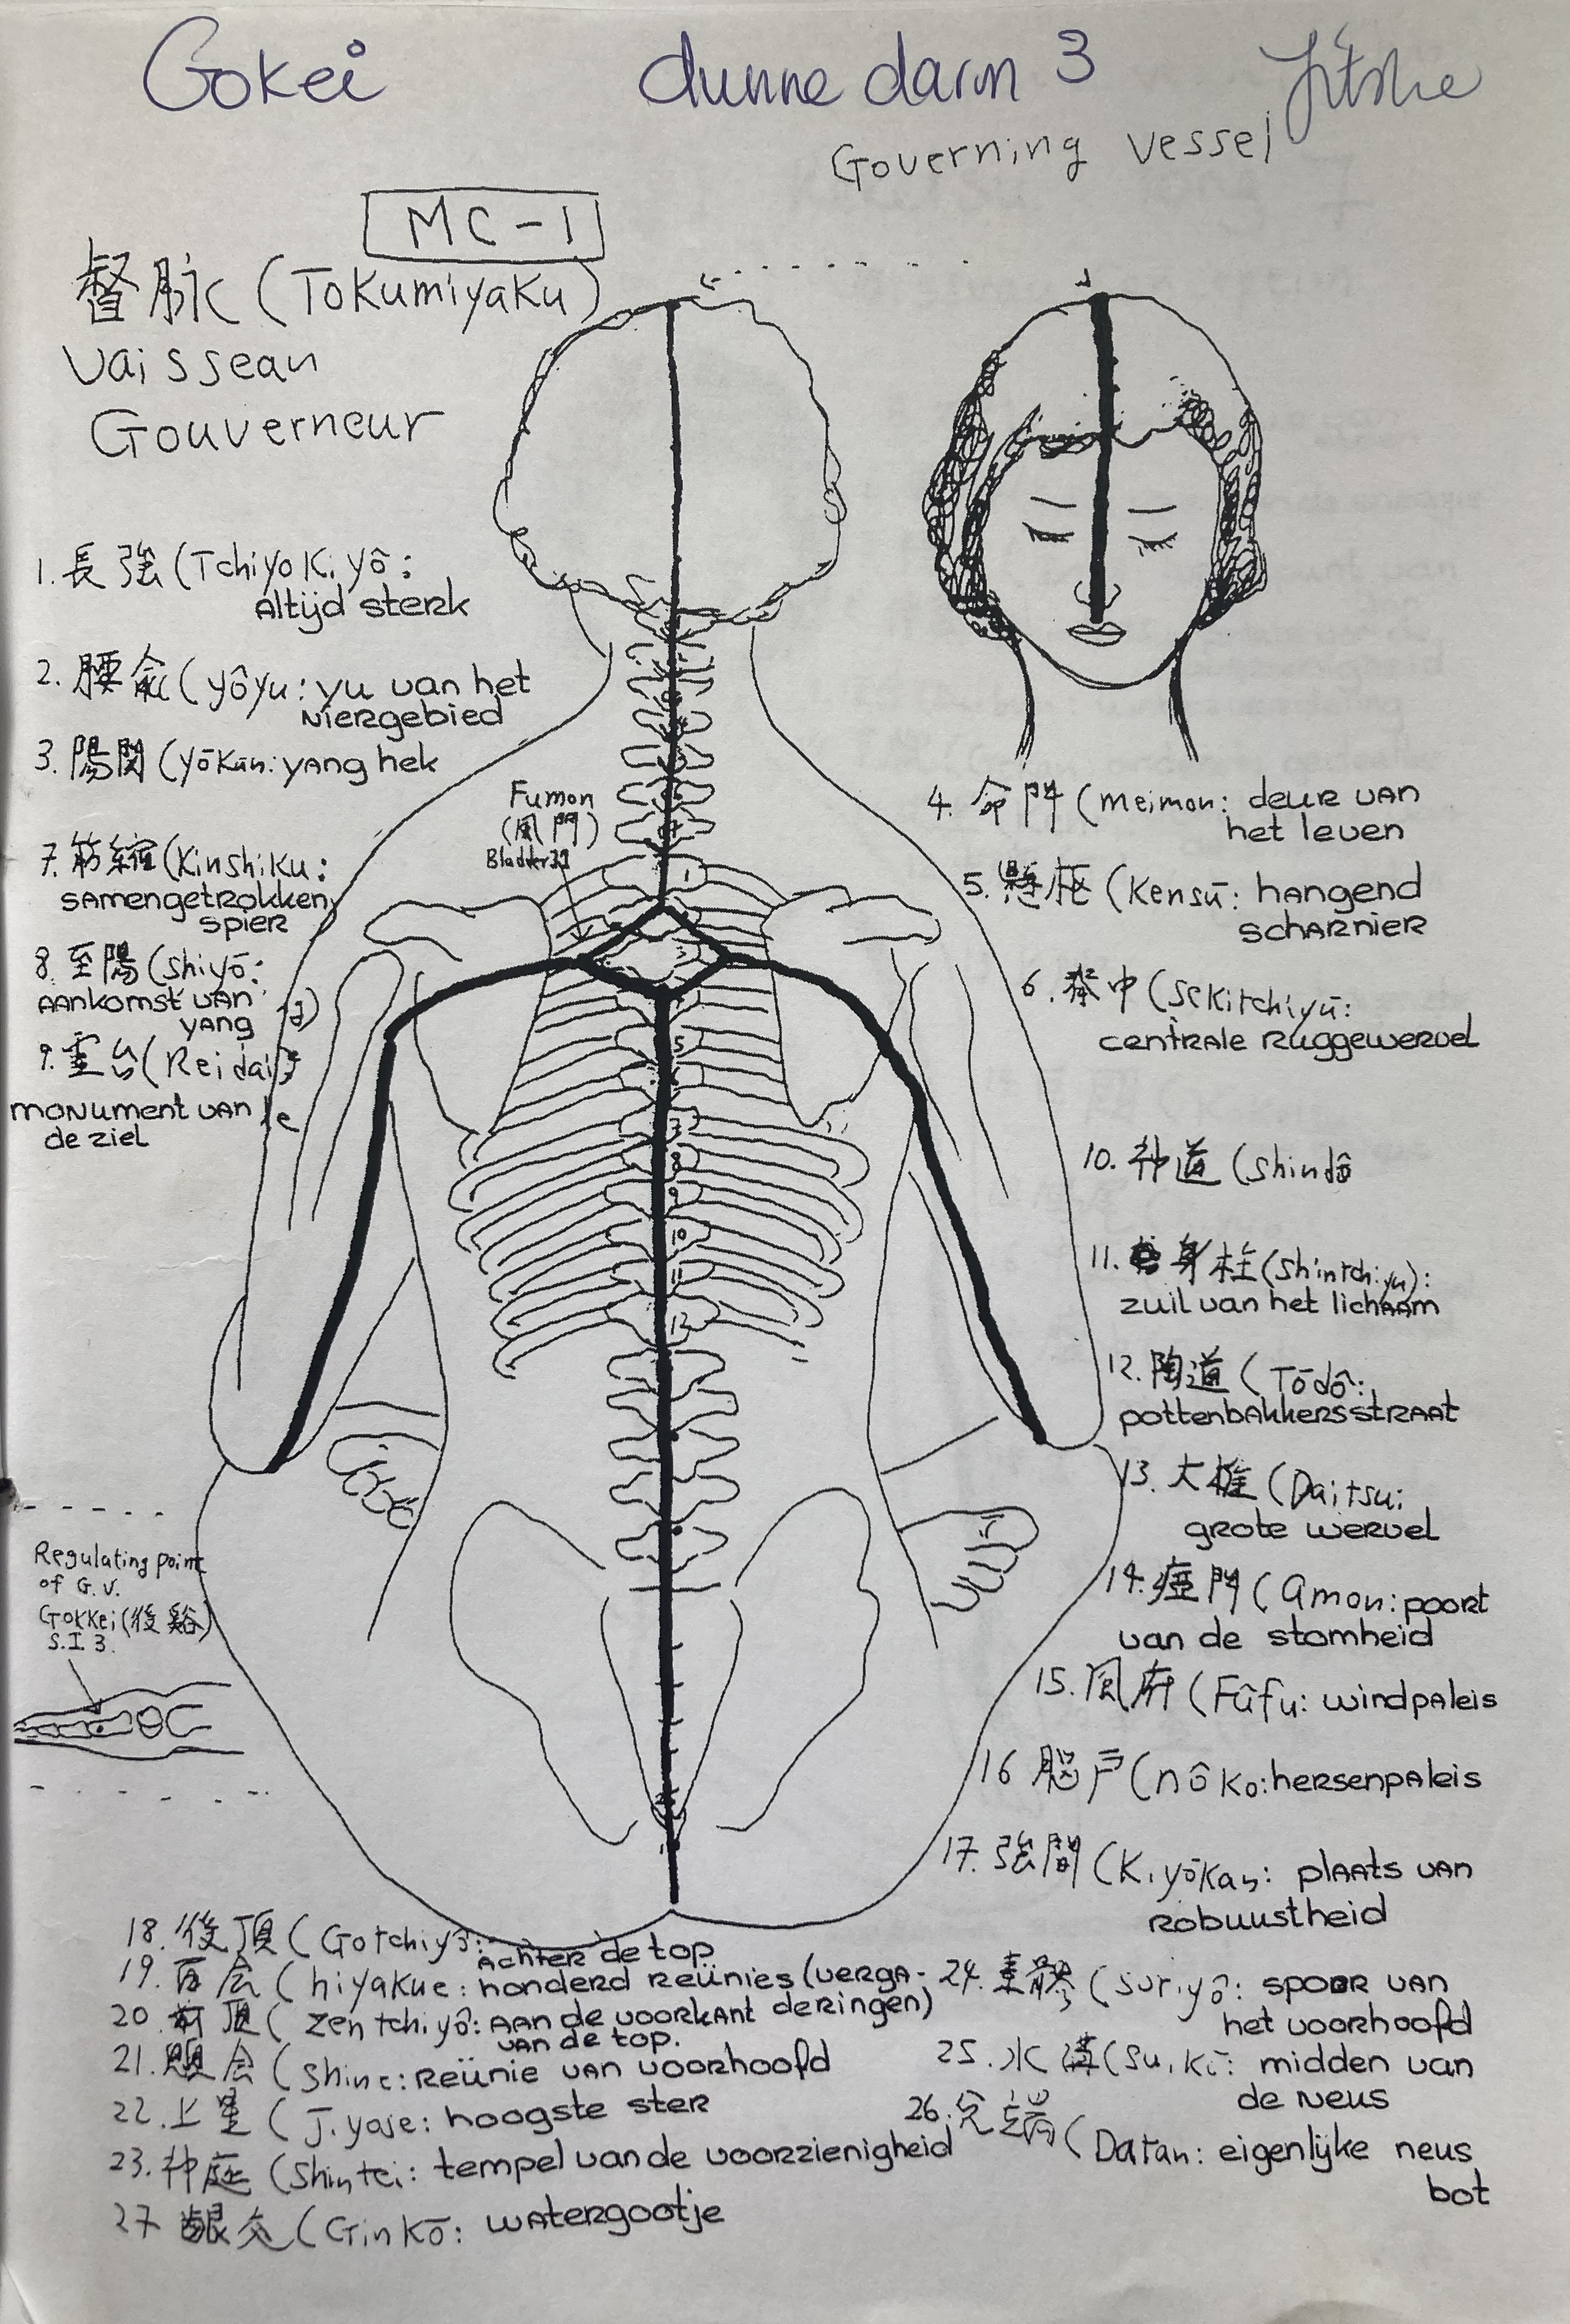 Gokei dunne darm 3 Jitske
Governing vessel
MC-1
督脉 (Tokumiyaku)
Vaissean
Gouverneur
1. 長強 (Tchiyokiyô:
Altijd sterk
2. 腰兪 (yôyu: yu van het
niergebied
3. 陽関 (yōkan: yang hek
Fumon
(風門)
Bladder
7. 筋縮 (Kinshiku:
samengetrokken
spier
8. 至陽 (shiyō:
aankomst van
yang
9. 霊台 (Reidai:
monument van
de ziel
4. 命門 (meimon: deur van
het leven
5. 懸枢 (Kensū: hangend
scharnier
6. 脊中 (Sekitchiyū:
centrale ruggewervel
10. 神道 (Shindô
11. 身柱 (Shintchiyu):
zuil van het lichaam
12. 陶道 (Tōdô:
pottenbakkersstraat
13. 大椎 (Daitsui:
grote wervel
14. 瘂門 (Amon: poort
van de stomheid
15. 風府 (Fûfu: windpaleis
16 脳戸 (nôko: hersenpaleis
17. 強間 (Kiyōkan: plaats van
robuustheid
1
3
5
7
8
9
10
11
12
Regulating point
of G.V.
Gokkei (後谿)
S.I.3.
18. 後頂 (Gotchiyō:
Achter de top
19. 百会 (hiyakue: honderd reünies (verga-
deringen)
20. 前頂 (Zentchiyô: aan de voorkant
van de top.
21. 顖会 (Shine: reünie van voorhoofd
22.上星 (Jiyose: hoogste ster
23. 神庭 (Shintei: tempel van de voorzienigheid
24. 素髎 (Suriyô: spoor van
het voorhoofd
25. 水溝 (Suikō: midden van
de neus
26. 兌端 (Datan: eigenlijke neus
bot
27 齦交 (Ginkō: watergootje